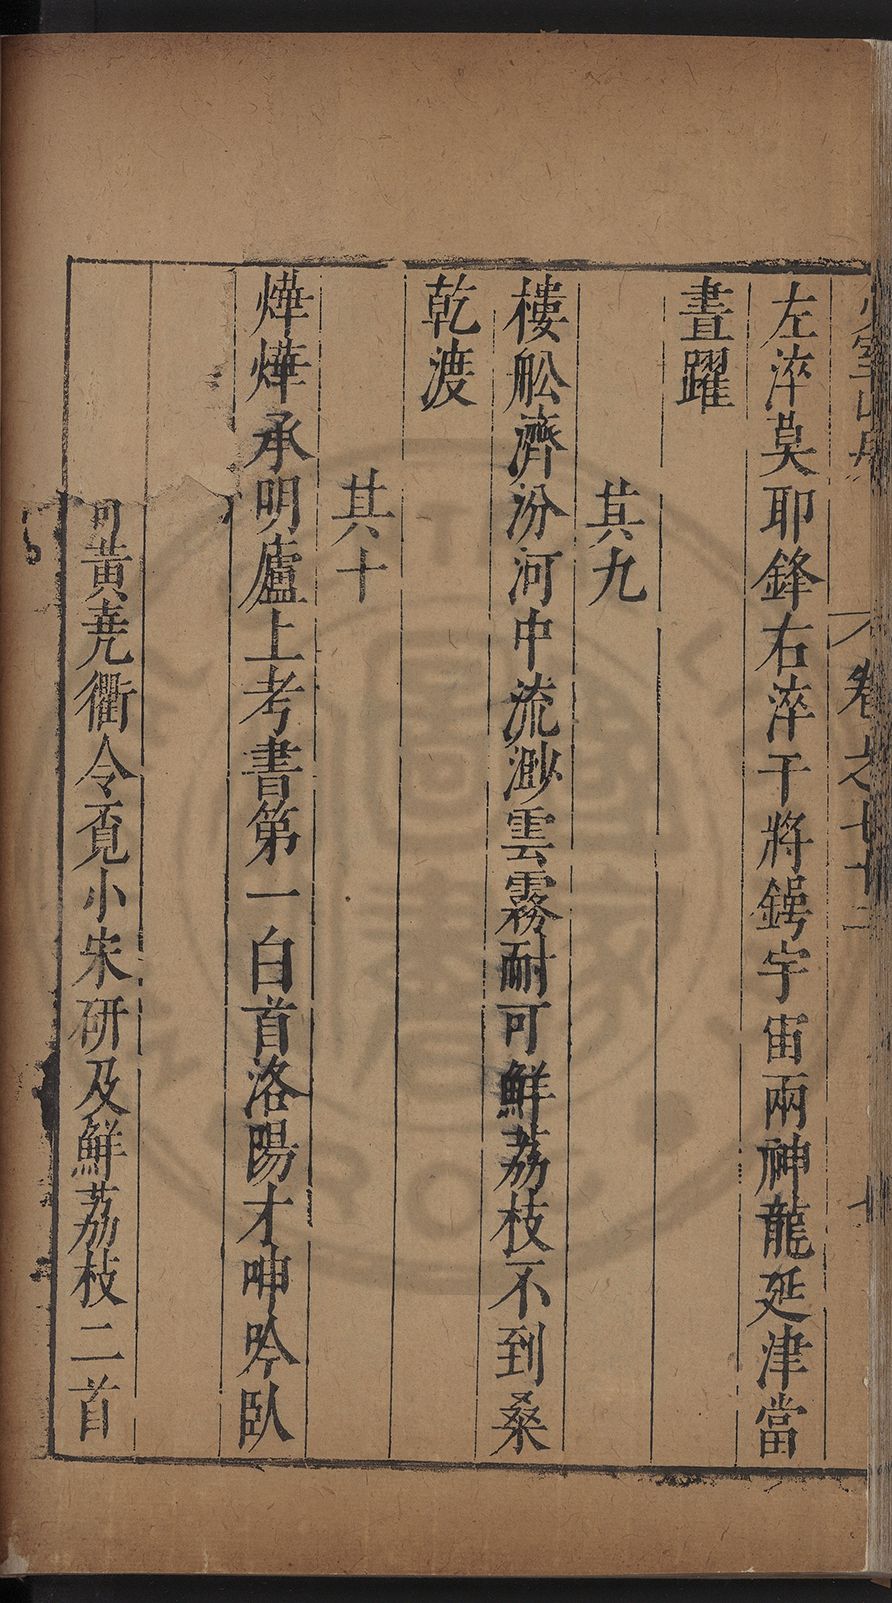 卷之七十二
左淬莫耶鋒右淬干將鍔宇宙兩神龍延津當
晝躍
其九
樓舩濟汾河中流渺雲霧耐可鮮荔枝不到桑
乾渡
其十
燁燁承明廬上考書第一白首洛陽才呻吟臥
黃堯衢令覔小宋研及鮮荔枝二首